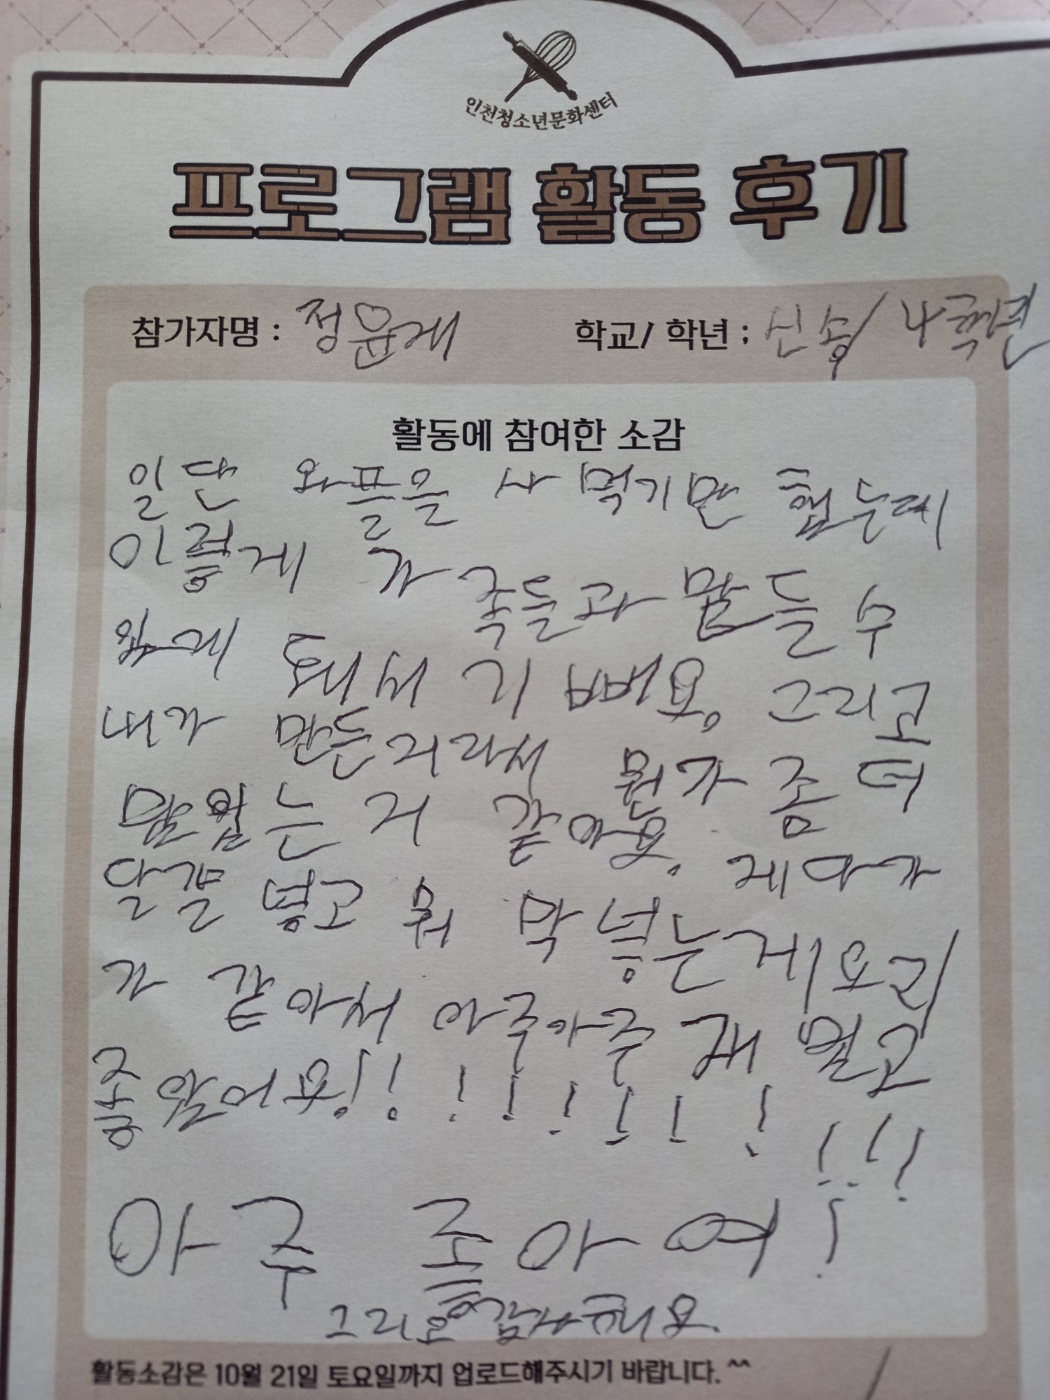 인천청소년문화센터
프로그램 활동 후기
참가자명 : 정윤게 학교/ 학년 ; 신송/ 4학년
활동에 참여한 소감
일단 와플을 사 먹기만 했는데
이렇게 가족들과 만들 수
있게 되서 기뻐요. 그리고
내가 만든거라서 뭔가 좀 더
맛있는 거 같아요. 게다가
달걀 넣고 뭐 막 넣는게 요리
가 같아서 아주아주 재밌고
좋았어요!!!!!!!!!!!
아주 좋아여!
그리고 감사해요.
활동소감은 10월 21일 토요일까지 업로드해주시기 바랍니다. ^^